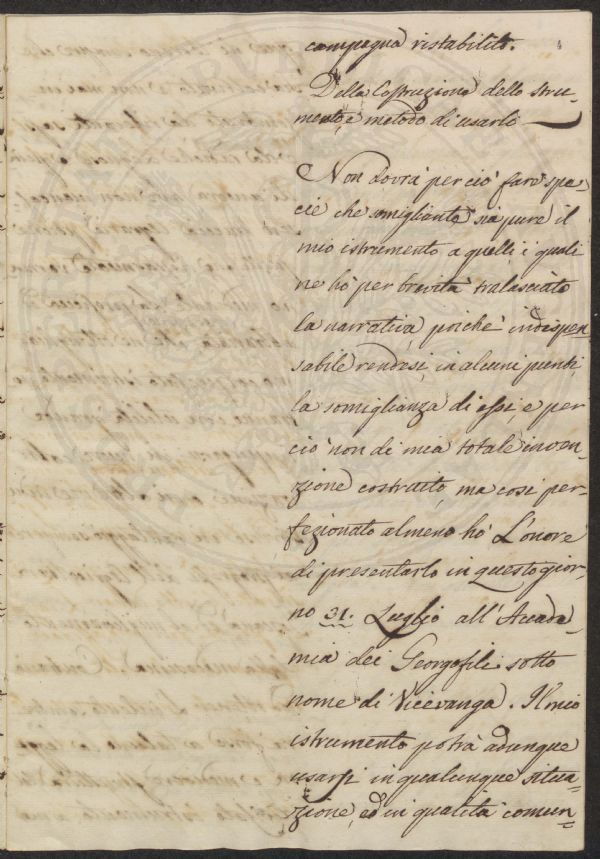 campagna ristabilito.
Della Costruzione dello Stru=
mento, e metodo di usarlo
Non dovrà per ciò fare spe=
cie che somigliante sia pure il
mio istrumento a quelli, i quali
ne hò per brevità tralasciato
la narrativa, poiché indispen=
sabile rendesi, in alcuni punti,
la somiglianza di essi, e per
ciò non di mia totale inven=
zione costruito, ma così per=
fezionato almeno hò L'onore
di presentarlo in questo gior=
no 31. Luglio all'Accade=
mia dei Georgofili sotto
nome di Vicevanga. Il mio
istrumento potrà adunque
usarsi in qualunque situa=
zione, ed in qualità comun=